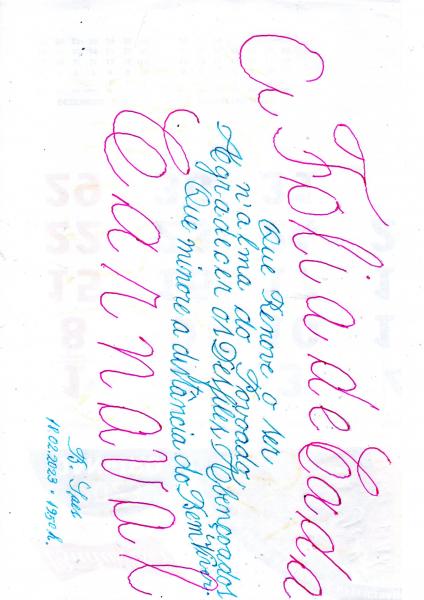 A Folia de Cada
Que Renove o ser
n'alma do Povoado
Agradecer os Desfiles Abençoados
Que minore a distância do Bem
Carnaval
B. Spes
18.02.2023 • 1950 h.